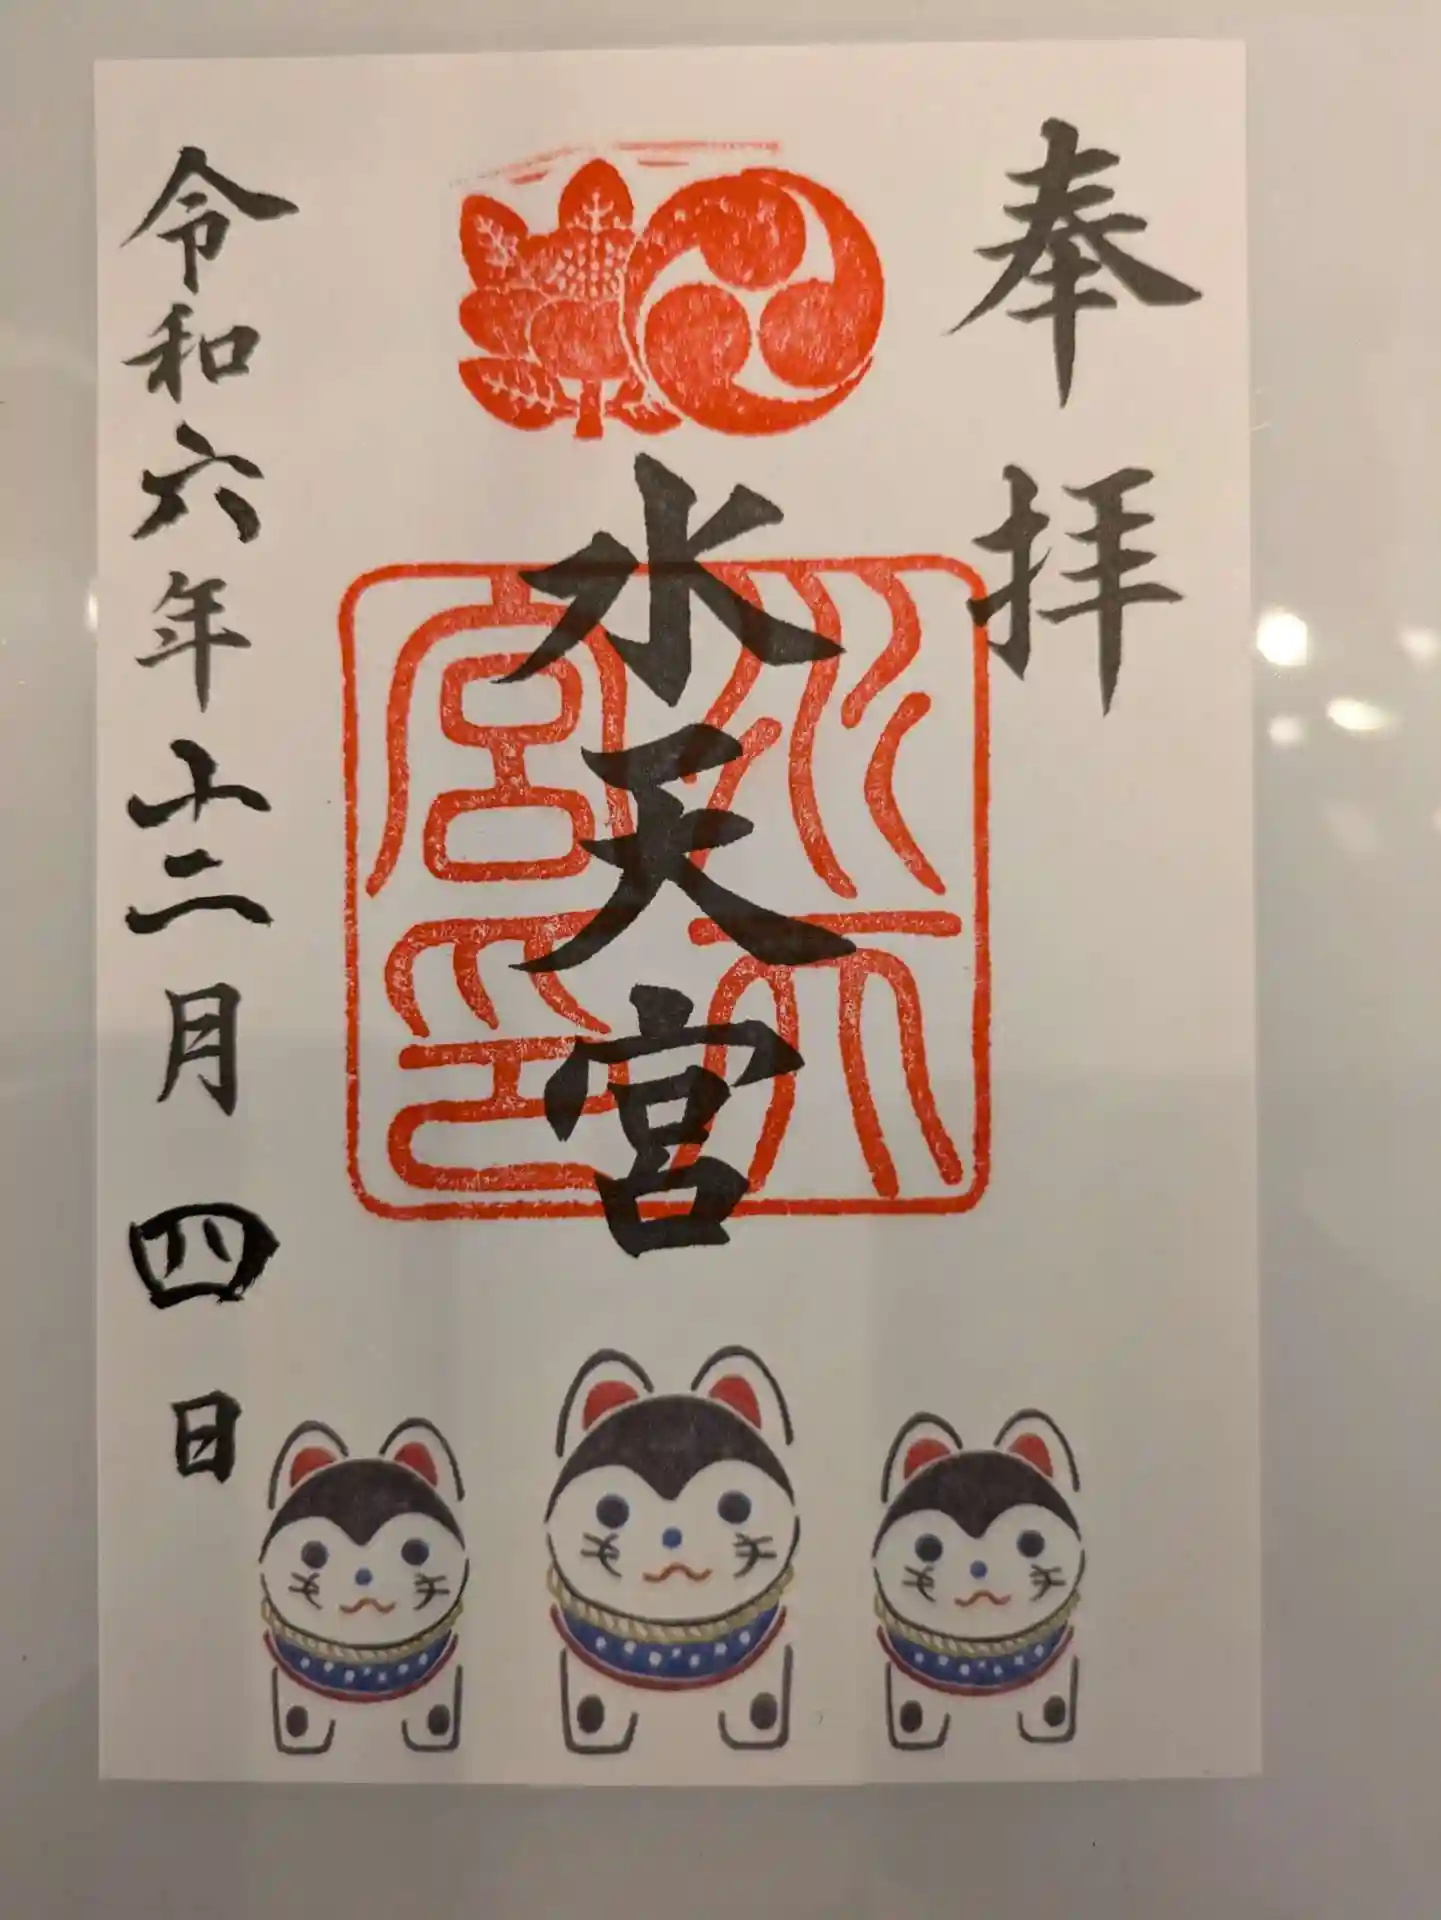 奉拝
水天宮
水天宮印
令和六年十二月四日